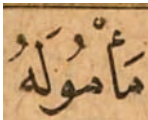 مَأْمُولَهُ